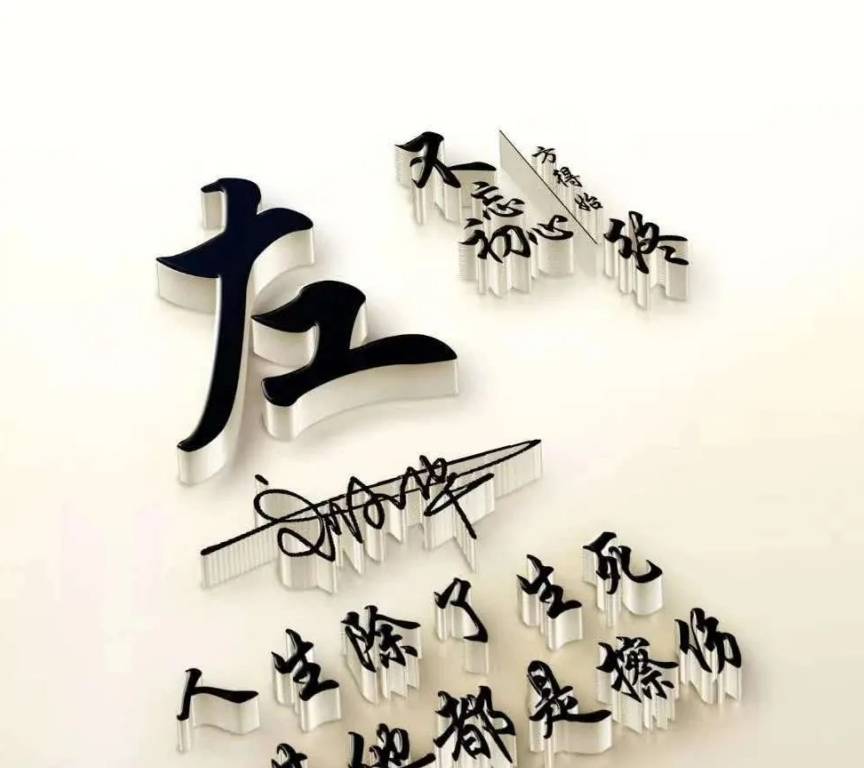 左
不忘初心
方得始终
人生除了生死
他都是擦伤